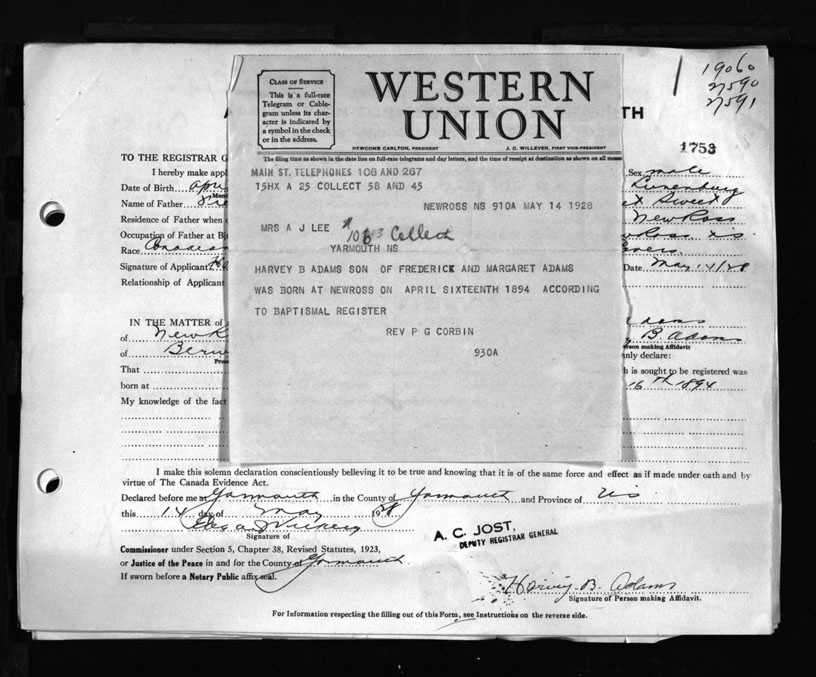 19060
27590
27591
TH
1753
CLASS OF SERVICE
This is a full-rate
Telegram or Cable-
gram unless its char-
acter is indicated by
a symbol in the check
or in the address.
WESTERN
UNION
NEWCOMB CARLTON, PRESIDENT
J. C. WILLEVER, FIRST VICE-PRESIDENT
The filing time as shown in the date line on full-rate telegrams and day letters, and the time of receipt at destination as shown on all mess
MAIN ST. TELEPHONES 106 AND 267
15HX A 25 COLLECT 58 AND 45
NEWROSS NS 910A MAY 14 1928
MRS A J LEE
Collect
YARMOUTH NS
HARVEY B ADAMS SON OF FREDERICK AND MARGARET ADAMS
WAS BORN AT NEWROSS ON APRIL SIXTEENTH 1894 ACCORDING
TO BAPTISMAL REGISTER
REV P G CORBIN
930A
TO THE REGISTRAR G
I hereby make appl Sex male
Date of Birth Apri Lunenburg
Name of Father Sweet
Residence of Father when New Ross
Occupation of Father at Bi Ross N.S.
Race Canadian
Signature of Applicant Date May 14/28
Relationship of Applicant
IN THE MATTER of adams
of New R B adams
Person making Affidavit
of Berw nly declare:
That h is sought to be registered was
born at 16th 1894
My knowledge of the fact
I make this solemn declaration conscientiously believing it to be true and knowing that it is of the same force and effect as if made under oath and by
virtue of The Canada Evidence Act.
Declared before me at Yarmouth in the County of Yarmouth and Province of N.S
this 14 day of May 1928
Signature of
Commissioner under Section 5, Chapter 38, Revised Statutes, 1923,
or Justice of the Peace in and for the County of Yarmouth
If sworn before a Notary Public affix seal.
A. C. JOST,
DEPUTY REGISTRAR GENERAL
Harvey B. Adams
Signature of Person making Affidavit.
For Information respecting the filling out of this Form, see Instructions on the reverse side.